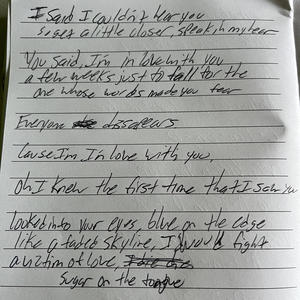 I said I couldn't hear you
so get a little closer, speak in my ear
You said, I'm in love with you
a few weeks just to fall for the
one whose words made you tear
Everyone disappears
Cause I'm, I'm in love with you,
oh I knew the first time that I saw you
looked into your eyes, blue on the edge
like a faded skyline, I would fight
a victim of love,
Sugar on the tongue